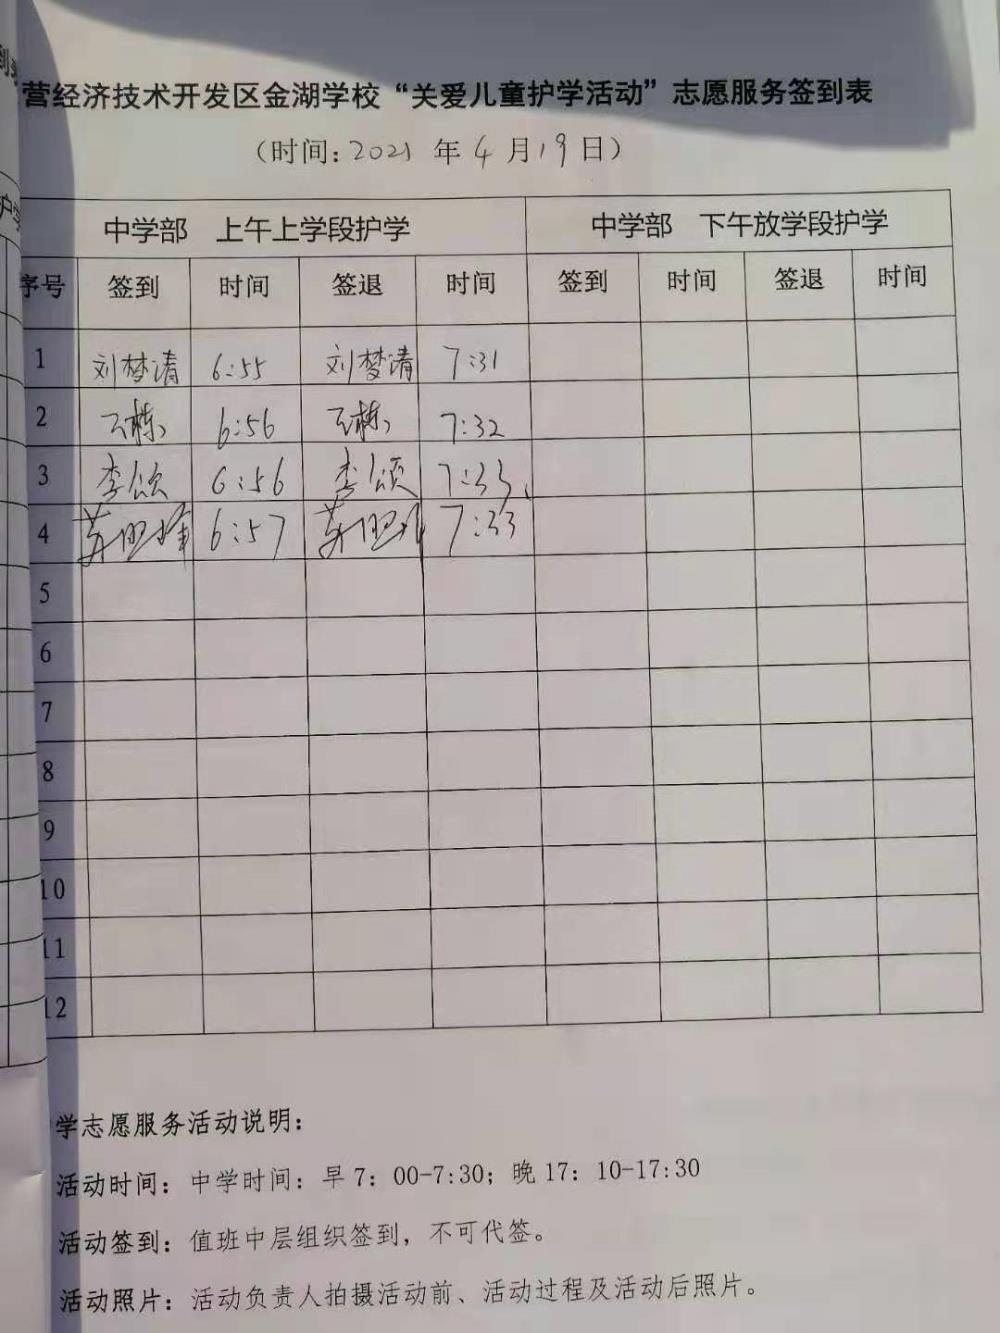 营经济技术开发区金湖学校“关爱儿童护学活动”志愿服务签到表
（时间：2021 年 4 月 19 日）
中学部 上午上学段护学 中学部 下午放学段护学
序号 签到 时间 签退 时间 签到 时间 签退 时间
1 刘梦清 6:55 刘梦清 7:31
2 6:56 7:32
3 李颂 6:56 李颂 7:33
4 6:57 7:33
5
6
7
8
9
10
11
12
学志愿服务活动说明：
活动时间：中学时间：早 7：00-7:30；晚 17：10-17:30
活动签到：值班中层组织签到，不可代签。
活动照片：活动负责人拍摄活动前、活动过程及活动后照片。